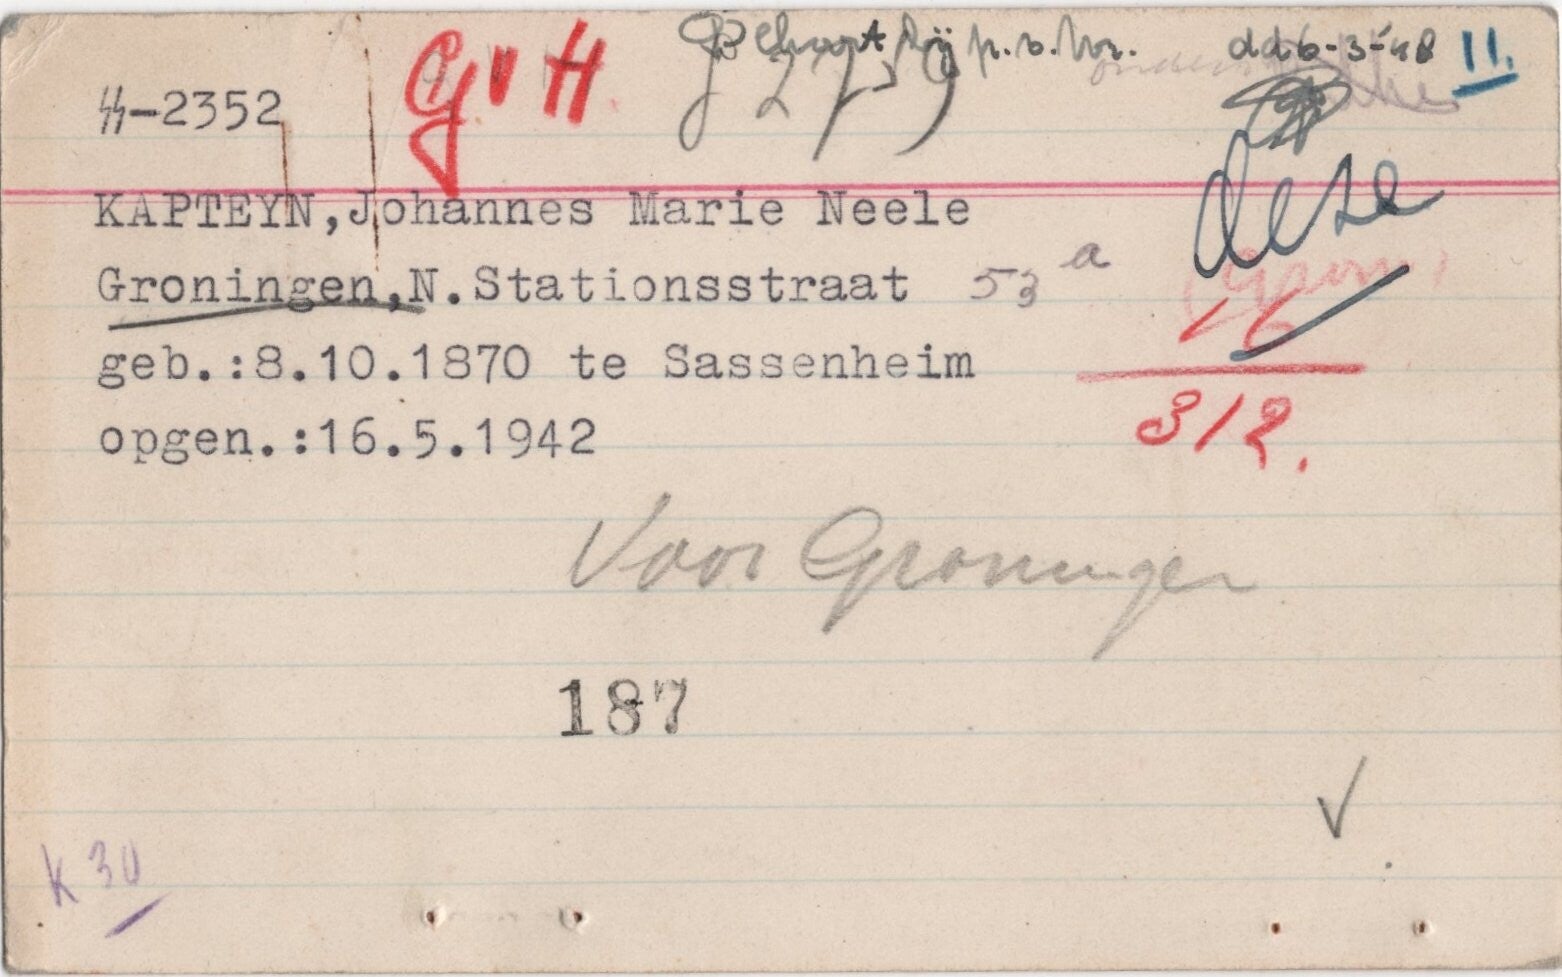 Behoort bij p.v. Nr. dd 6-3-'48 II.
G v H
ᛋᛋ-2352
KAPTEYN,Johannes Marie Neele
Groningen,N.Stationsstraat 53 a
geb.:8.10.1870 te Sassenheim
16
312.
opgen.:16.5.1942
Voor Groningen
187
K 30